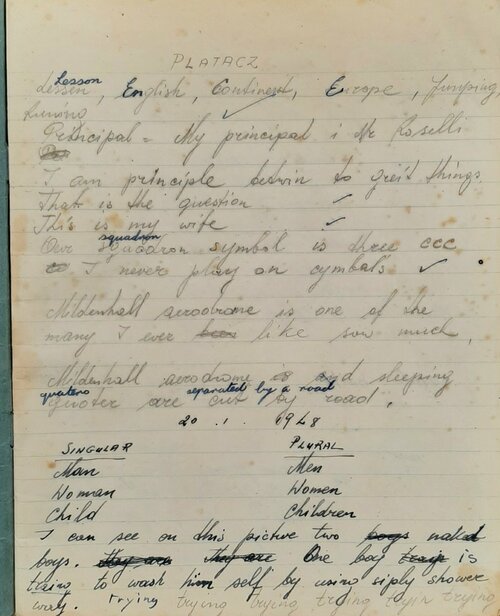 PLATACZ
Lesson
Lessen, English, Continent, Europe, Jumping
Running
Principal = My principal i Mr Roselli
I am principle betwin to greit things
That is the question
This is my wife
squadron
Our sqaodron symbol is three ccc
I never play on cymbals
Mildenhall aerodrome is one of the
many I ever been like sow much.
Mildenhall aerodrome and sleeping
quaters separated by a road
quoter are cut by road.
20.1.1948
SINGULAR PLURAL
Man Men
Woman Women
Child Children
I can see on this picture two boys naked
boys. they are they are One boy is
to wash him self by using siply shower
way. Trying trying trying trying trying